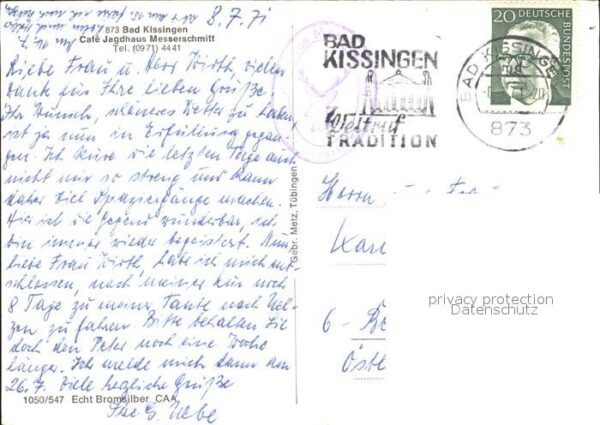 8.7.71
873 Bad Kissingen
Café Jagdhaus Messerschmitt
Tel. (0971) 4441
Liebe Frau u. Herr Wirth, vielen
Dank für Ihre lieben Grüße
Ihr Wunsch, schöneres Wetter zu haben,
ist ja nun in Erfüllung gegan-
gen. Ich kure die letzten Tage auch
nicht mehr so streng und kann
daher viel Spaziergänge machen.
Hier ist die Gegend wunderbar, ich
bin immer wieder begeistert. Nun,
liebe Frau Wirth, habe ich mich ent-
schlossen, nach meiner Kur noch
8 Tage zu meiner Tante nach Uel-
zen zu fahren. Bitte behalten Sie
doch den Peter noch eine Woche
länger. Ich melde mich dann am
26.7. Viele herzliche Grüße
Ihre G.
1050/547 Echt Bromsilber CAA
Gebr. Metz, Tübingen
BAD
KISSINGEN
Weltruf
TRADITION
BAD KISSINGEN
873
20
DEUTSCHE
BUNDESPOST
Herrn
6 -
privacy protection
Datenschutz